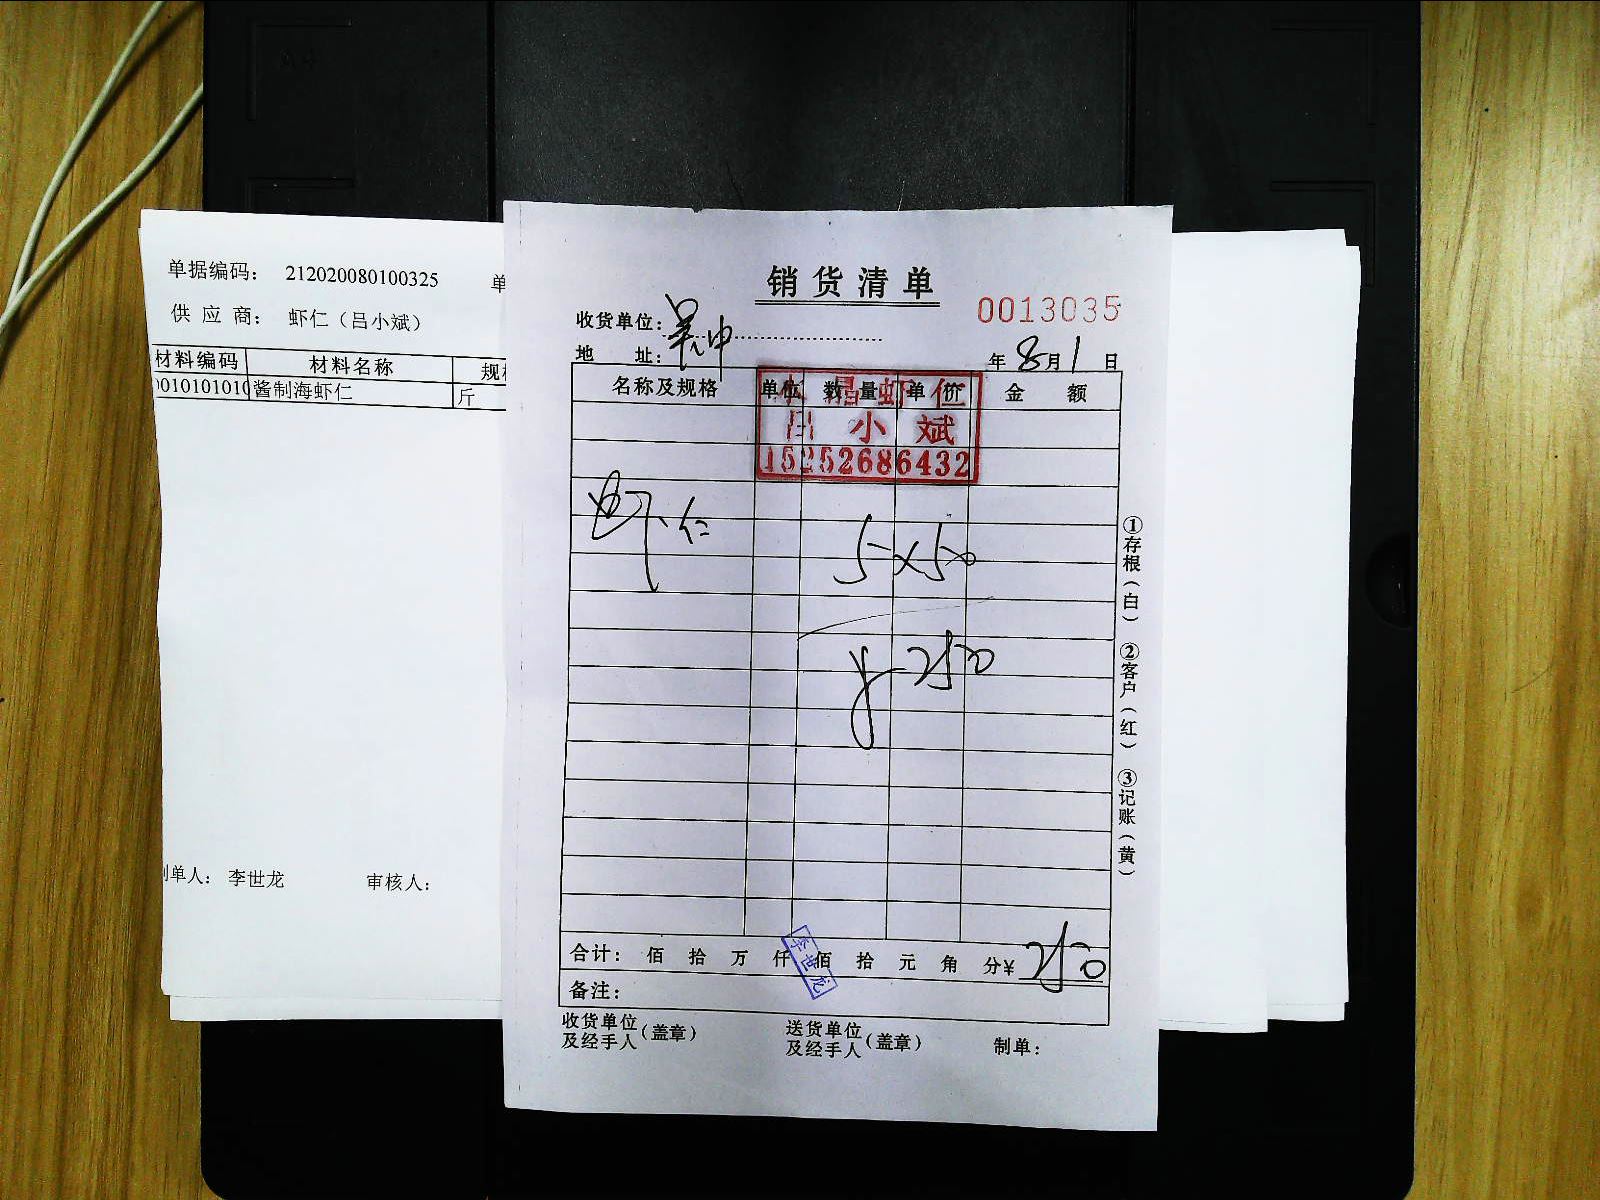 单据编码： 212020080100325 单
供 应 商： 虾仁（吕小斌）
材料编码 材料名称 规
0010101010 酱制海虾仁 斤
制单人： 李世龙 审核人：
销货清单
0013035
收货单位：吴中
地 址：
年 8月1日
名称及规格 单位 数量 单价 金额
水晶虾仁
吕小斌
15252686432
虾仁 5×50
¥250
合计： 佰 拾 万 仟 佰 拾 元 角 分¥ 250
李世龙
备注：
收货单位及经手人（盖章） 送货单位及经手人（盖章） 制单：
①存根（白） ②客户（红） ③记账（黄）